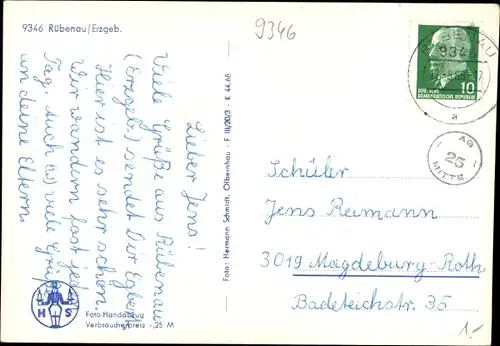 9346 Rübenau/Erzgeb.
9346
Lieber Jens!
Viele Grüße aus Rübenau
(Erzgeb.) sendet Dir Egbert
Hier ist es sehr schön.
Wir wandern fast jed
Tag. Auch a viele Grüß
an deine Eltern.
H S
Foto-Handabzug
Verbraucherpreis -,25 M
Foto: Hermann Schmidt, Olbernhau · F III/20/3 · K 44.68
9346
a
10
DEUTSCHE
DEMOKRATISCHE REPUBLIK
AG
25
MITTE
Schüler
Jens Reimann
3019 Magdeburg-Roth.
Badeteichstr. 35
1.-